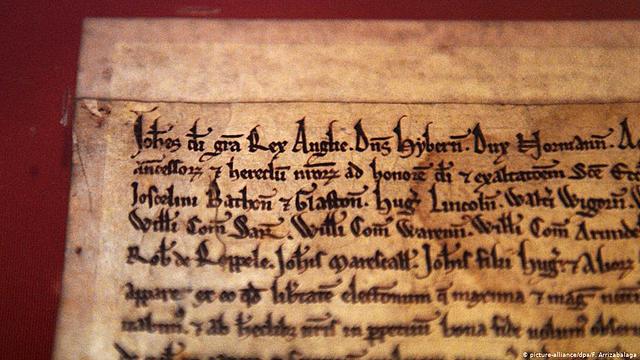 Joh̅es d̅i gr̅a Rex Anglie. Dn̅s Hybern̅. Dux Normann̅.
ancessor̅ ⁊ heredu̅ meor̅ ad honore̅ d̅i ⁊ exaltatioem̅ Sc̅e
Joscelini Bathon̅ ⁊ Glaston̅. Hug̅ Lincoln̅. Walt̅i Wigorn̅.
Will̅i Com̅ Sarr̅. Will̅i Com̅ Warenn̅. Will̅i Com̅ Arunde
Rob̅ de Roppele. Joh̅is Marescall̅. Joh̅is filii Hug̅ ⁊ Alior̅
appare et eo q̅d lib̅tate̅ electionum q̅ maxima ⁊ mag̅
⁊ ab hered̅ib̅ n̅ris in p̅petuu̅m bona fide
© picture-alliance/dpa/F. Arrizabalaga